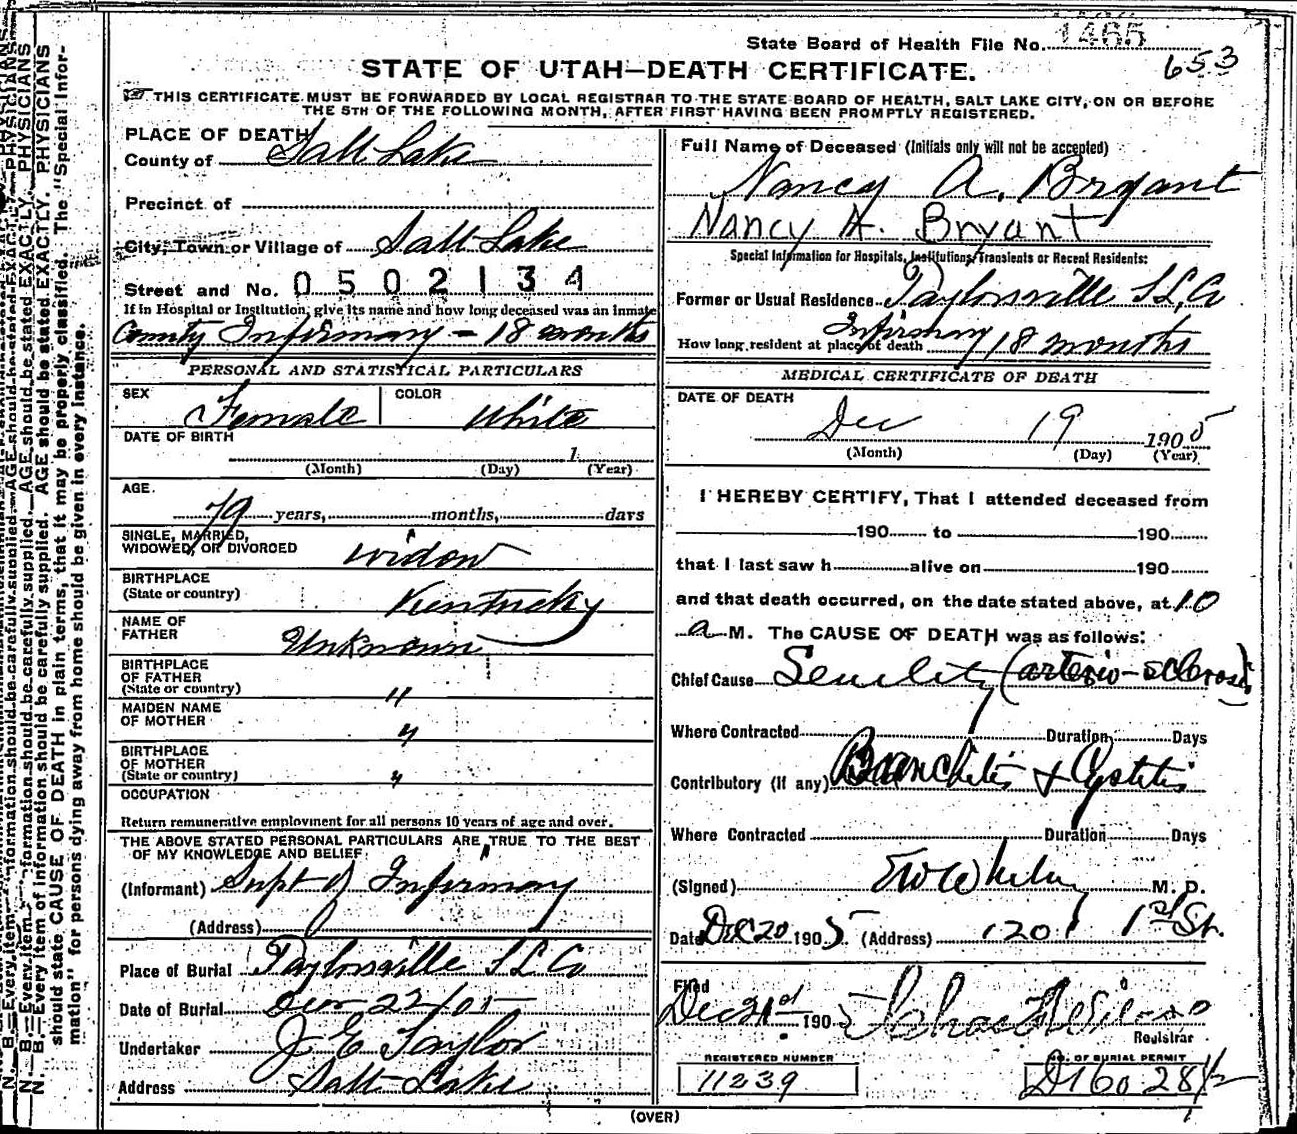 State Board of Health File No. 1465
653
STATE OF UTAH—DEATH CERTIFICATE.
THIS CERTIFICATE MUST BE FORWARDED BY LOCAL REGISTRAR TO THE STATE BOARD OF HEALTH, SALT LAKE CITY, ON OR BEFORE
THE 5TH OF THE FOLLOWING MONTH, AFTER FIRST HAVING BEEN PROMPTLY REGISTERED.
PLACE OF DEATH
County of Salt Lake
Precinct of
City, Town or Village of Salt Lake
Street and No. 0502134
If in Hospital or Institution, give its name and how long deceased was an inmate
County Infirmary - 18 months
PERSONAL AND STATISTICAL PARTICULARS
SEX Female COLOR White
DATE OF BIRTH
1
(Month) (Day) (Year)
AGE.
79 years, months, days
SINGLE, MARRIED,
WIDOWED, OR DIVORCED widow
BIRTHPLACE
(State or country) Kentucky
NAME OF
FATHER Unknown
BIRTHPLACE
OF FATHER
(State or country) "
MAIDEN NAME
OF MOTHER "
BIRTHPLACE
OF MOTHER
(State or country) "
OCCUPATION
Return remunerative employment for all persons 10 years of age and over.
THE ABOVE STATED PERSONAL PARTICULARS ARE TRUE TO THE BEST
OF MY KNOWLEDGE AND BELIEF
(Informant) Supt of Infirmary
(Address)
Place of Burial Taylorsville S L Co
Date of Burial Dec 22/05
Undertaker J E Taylor
Address Salt Lake
Full Name of Deceased (Initials only will not be accepted)
Nancy A. Bryant
Nancy A. Bryant
Special Information for Hospitals, Institutions, Transients or Recent Residents:
Former or Usual Residence Taylorsville S.L.Co
How long resident at place of death Infirmary 18 months
MEDICAL CERTIFICATE OF DEATH
DATE OF DEATH
Dec 19 1905
(Month) (Day) (Year)
I HEREBY CERTIFY, That I attended deceased from
190 to 190
that I last saw h alive on 190
and that death occurred, on the date stated above, at 10
a M. The CAUSE OF DEATH was as follows:
Chief Cause Senility (arterio-sclerosis)
Where Contracted Duration Days
Contributory (if any) Bronchitis & Cystitis
Where Contracted Duration Days
(Signed) M. D.
Date Dec 20 1905. (Address) 120 1st St.
Filed
Dec 21st 1905
Registrar
REGISTERED NUMBER
11239
NO. OF BURIAL PERMIT
(OVER)
N. B.—Every item of information should be carefully supplied. AGE should be stated EXACTLY. PHYSICIANS
should state CAUSE OF DEATH in plain terms, that it may be properly classified. The "Special Infor-
mation" for persons dying away from home should be given in every instance.